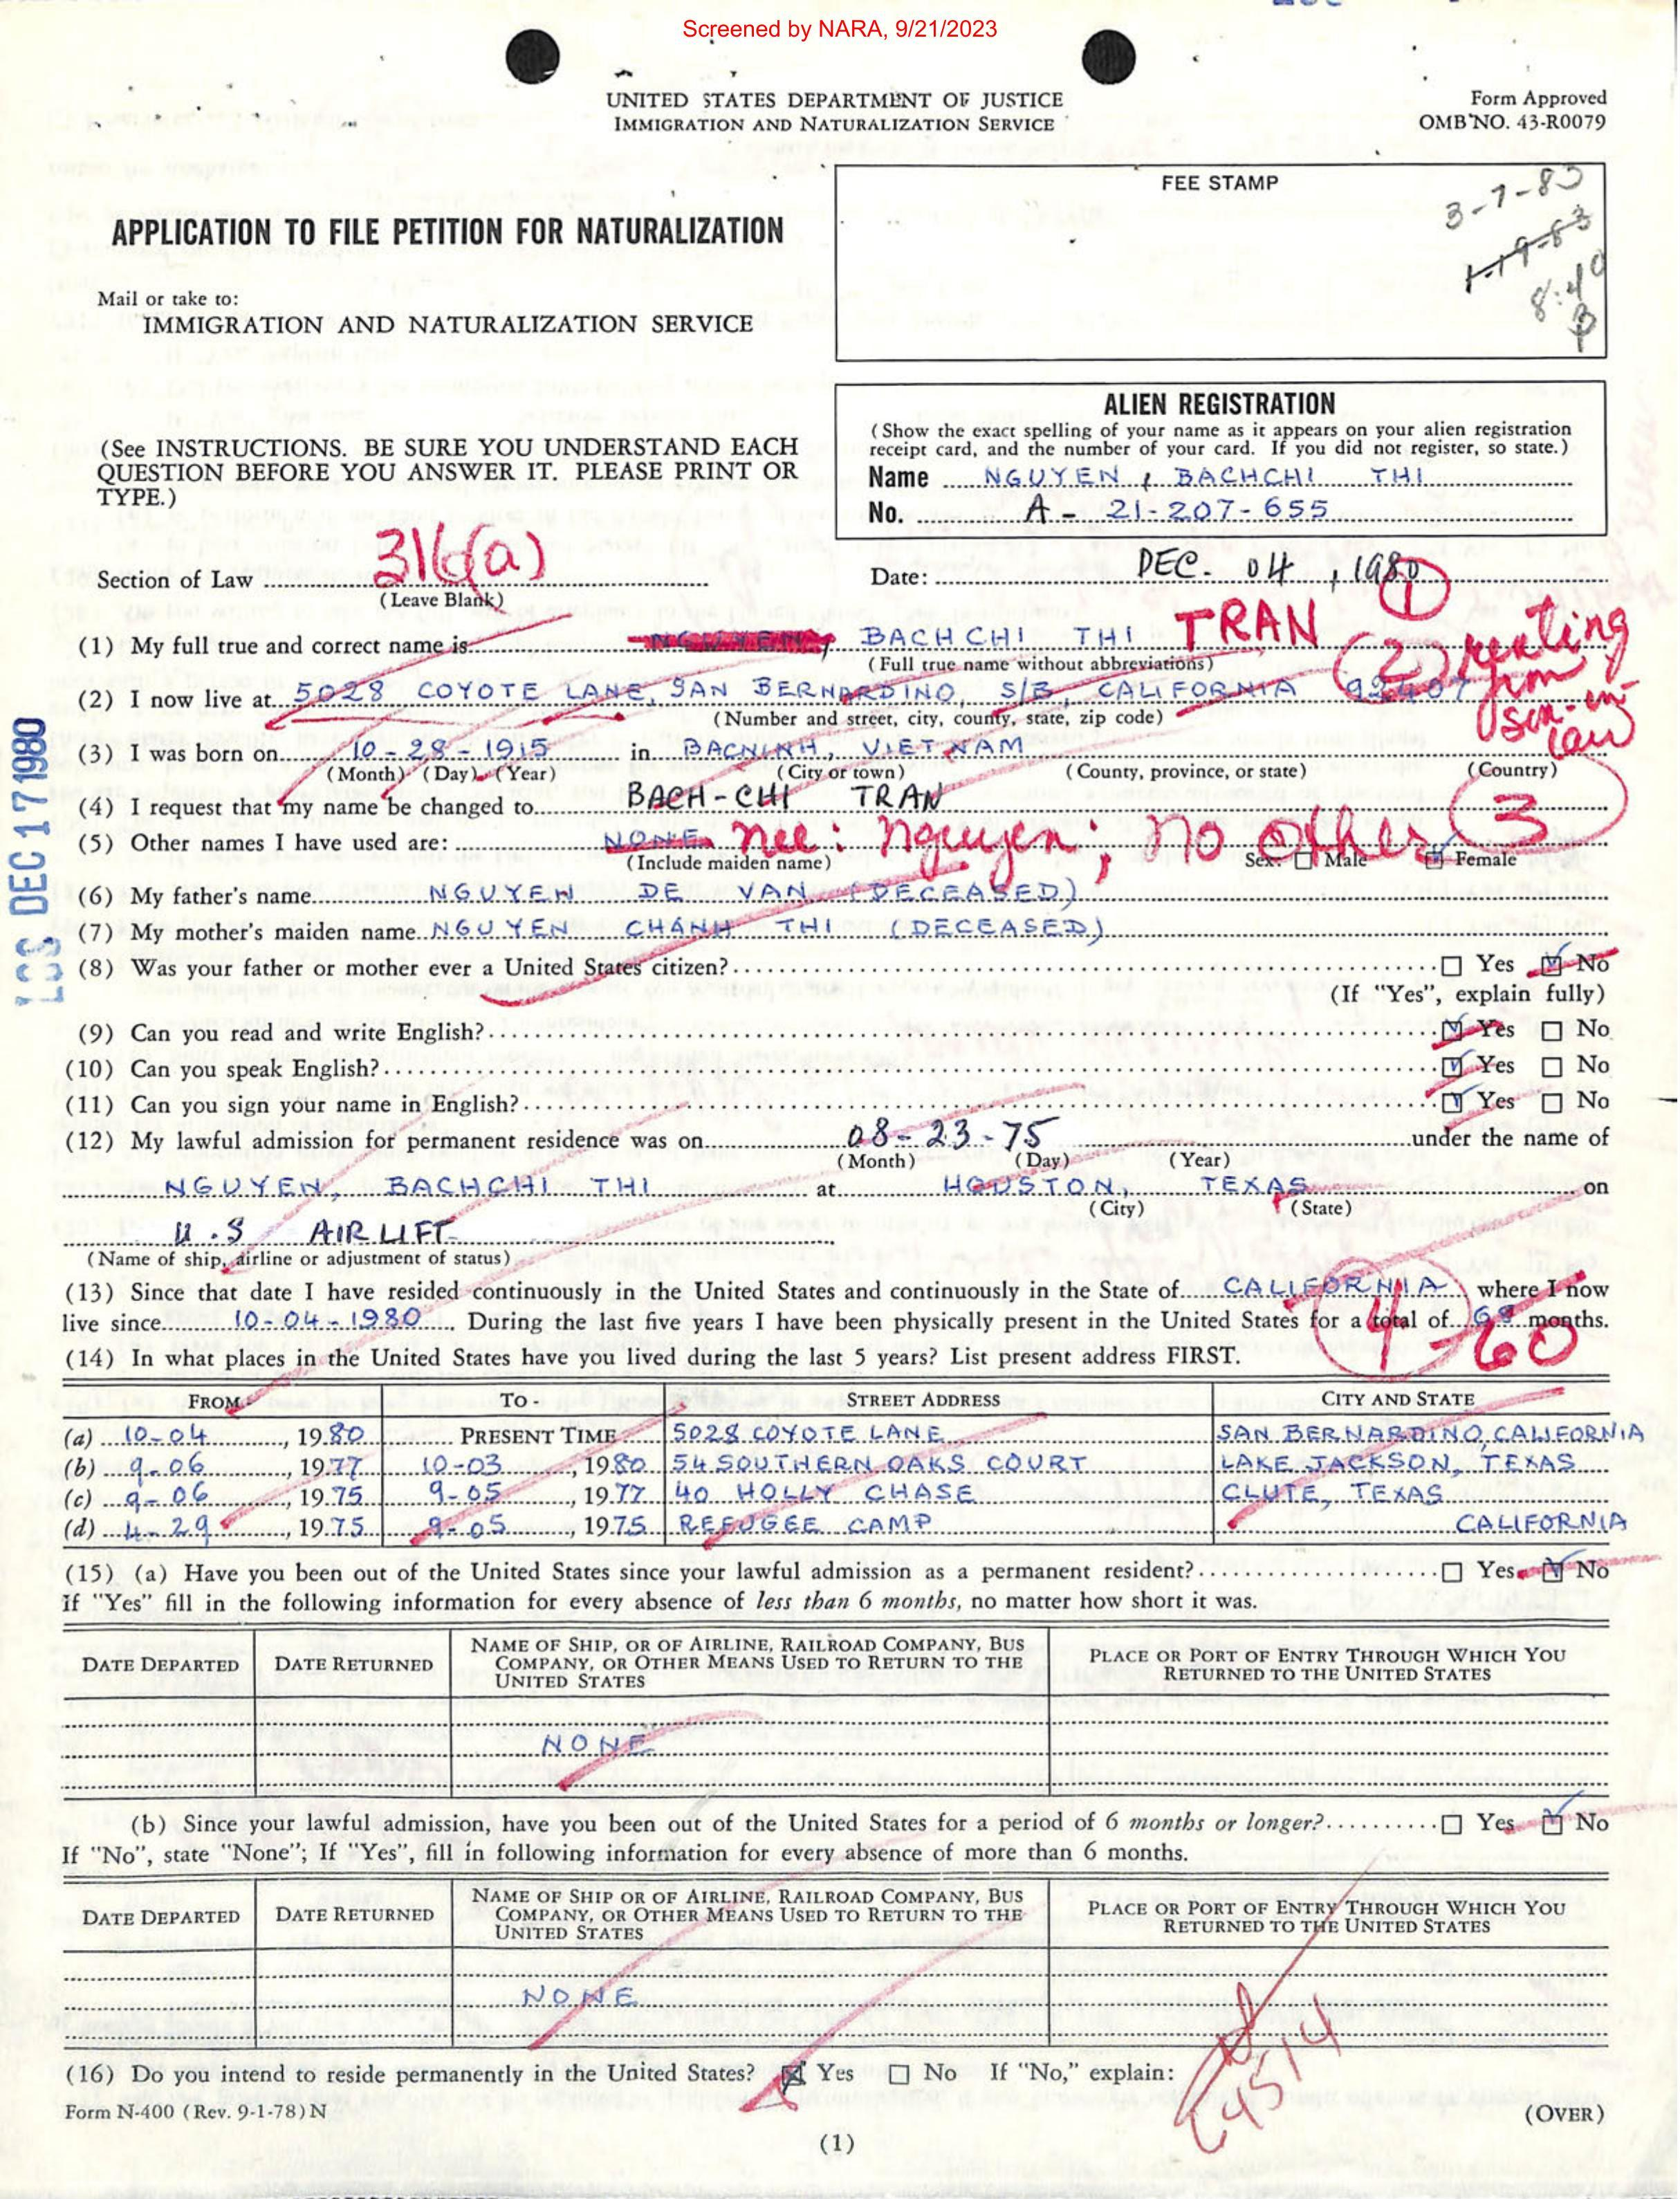 Screened by NARA, 9/21/2023
UNITED STATES DEPARTMENT OF JUSTICE
IMMIGRATION AND NATURALIZATION SERVICE
Form Approved
OMB NO. 43-R0079
FEE STAMP
3-7-83
1-19-83
8:40
APPLICATION TO FILE PETITION FOR NATURALIZATION
Mail or take to:
IMMIGRATION AND NATURALIZATION SERVICE
(See INSTRUCTIONS. BE SURE YOU UNDERSTAND EACH
QUESTION BEFORE YOU ANSWER IT. PLEASE PRINT OR
TYPE.)
ALIEN REGISTRATION
(Show the exact spelling of your name as it appears on your alien registration
receipt card, and the number of your card. If you did not register, so state.)
Name NGUYEN, BACHCHI THI
No. A- 21-207-655
Section of Law 316(a)
(Leave Blank)
Date: DEC. 04, 1980
1
(1) My full true and correct name is NGUYEN, BACHCHI THI TRAN
(Full true name without abbreviations)
2 renting from son-in-law
(2) I now live at 5028 COYOTE LANE, SAN BERNARDINO, S/B, CALIFORNIA 92407
(Number and street, city, county, state, zip code)
(3) I was born on 10-28-1915 in BACNINH, VIETNAM
(Month) (Day) (Year) (City or town) (County, province, or state) (Country)
(4) I request that my name be changed to BACH-CHI TRAN
3
(5) Other names I have used are: NONE nee: Nguyen; no other
(Include maiden name) Sex: Male Female
(6) My father's name NGUYEN DE VAN (DECEASED)
(7) My mother's maiden name NGUYEN CHÁNH THI (DECEASED)
(8) Was your father or mother ever a United States citizen? Yes No
(If "Yes", explain fully)
(9) Can you read and write English? Yes No
(10) Can you speak English? Yes No
(11) Can you sign your name in English? Yes No
(12) My lawful admission for permanent residence was on 08-23-75 under the name of
(Month) (Day) (Year)
NGUYEN, BACHCHI THI at HOUSTON, TEXAS on
(City) (State)
U.S AIRLIFT
(Name of ship, airline or adjustment of status)
(13) Since that date I have resided continuously in the United States and continuously in the State of CALIFORNIA where I now
live since 10-04-1980. During the last five years I have been physically present in the United States for a total of 68 months.
4 - 60
(14) In what places in the United States have you lived during the last 5 years? List present address FIRST.
FROM TO - STREET ADDRESS CITY AND STATE
(a) 10-04, 1980 PRESENT TIME 5028 COYOTE LANE SAN BERNARDINO, CALIFORNIA
(b) 9-06, 1977 10-03, 1980 54 SOUTHERN OAKS COURT LAKE JACKSON, TEXAS
(c) 9-06, 1975 9-05, 1977 40 HOLLY CHASE CLUTE, TEXAS
(d) 4-29, 1975 9-05, 1975 REFUGEE CAMP CALIFORNIA
(15) (a) Have you been out of the United States since your lawful admission as a permanent resident? Yes No
If "Yes" fill in the following information for every absence of less than 6 months, no matter how short it was.
DATE DEPARTED DATE RETURNED NAME OF SHIP, OR OF AIRLINE, RAILROAD COMPANY, BUS COMPANY, OR OTHER MEANS USED TO RETURN TO THE UNITED STATES PLACE OR PORT OF ENTRY THROUGH WHICH YOU RETURNED TO THE UNITED STATES
NONE
(b) Since your lawful admission, have you been out of the United States for a period of 6 months or longer? Yes No
If "No", state "None"; If "Yes", fill in following information for every absence of more than 6 months.
DATE DEPARTED DATE RETURNED NAME OF SHIP OR OF AIRLINE, RAILROAD COMPANY, BUS COMPANY, OR OTHER MEANS USED TO RETURN TO THE UNITED STATES PLACE OR PORT OF ENTRY THROUGH WHICH YOU RETURNED TO THE UNITED STATES
NONE
(16) Do you intend to reside permanently in the United States? Yes No If "No," explain:
Form N-400 (Rev. 9-1-78) N
(OVER)
(1)
DEC 17 1980